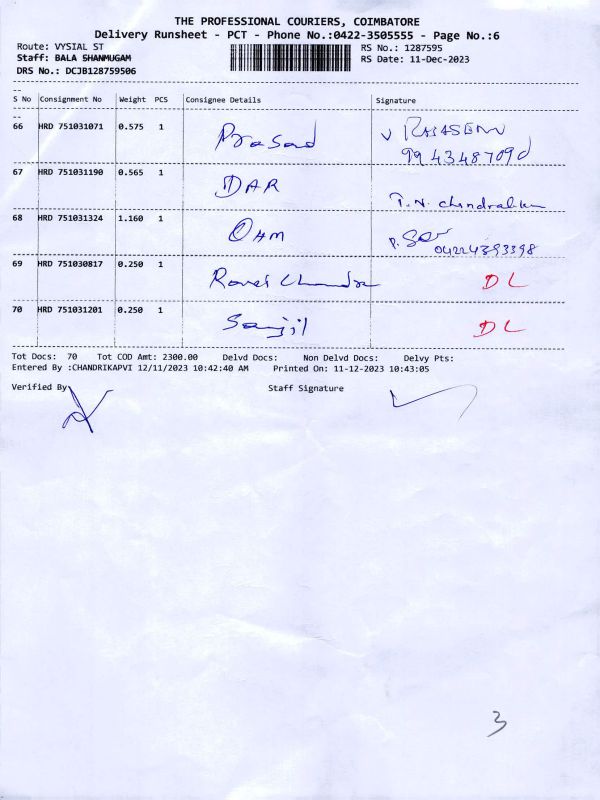 THE PROFESSIONAL COURIERS, COIMBATORE
Delivery Runsheet - PCT - Phone No.:0422-3505555 - Page No.:6
Route: VYSIAL ST RS No.: 1287595
Staff: BALA SHANMUGAM RS Date: 11-Dec-2023
DRS No.: DCJB128759506
S No Consignment No Weight PCS Consignee Details Signature
66 HRD 751031071 0.575 1 Prasad V RAJASENU
9943487090
67 HRD 751031190 0.565 1 DAR T.N. Chandralekha
68 HRD 751031324 1.160 1 OHM P.
04224393398
69 HRD 751030817 0.250 1 Chandra DL
70 HRD 751031201 0.250 1 DL
Tot Docs: 70 Tot COD Amt: 2300.00 Delvd Docs: Non Delvd Docs: Delvy Pts:
Entered By :CHANDRIKAPVI 12/11/2023 10:42:40 AM Printed On: 11-12-2023 10:43:05
Verified By Staff Signature
3